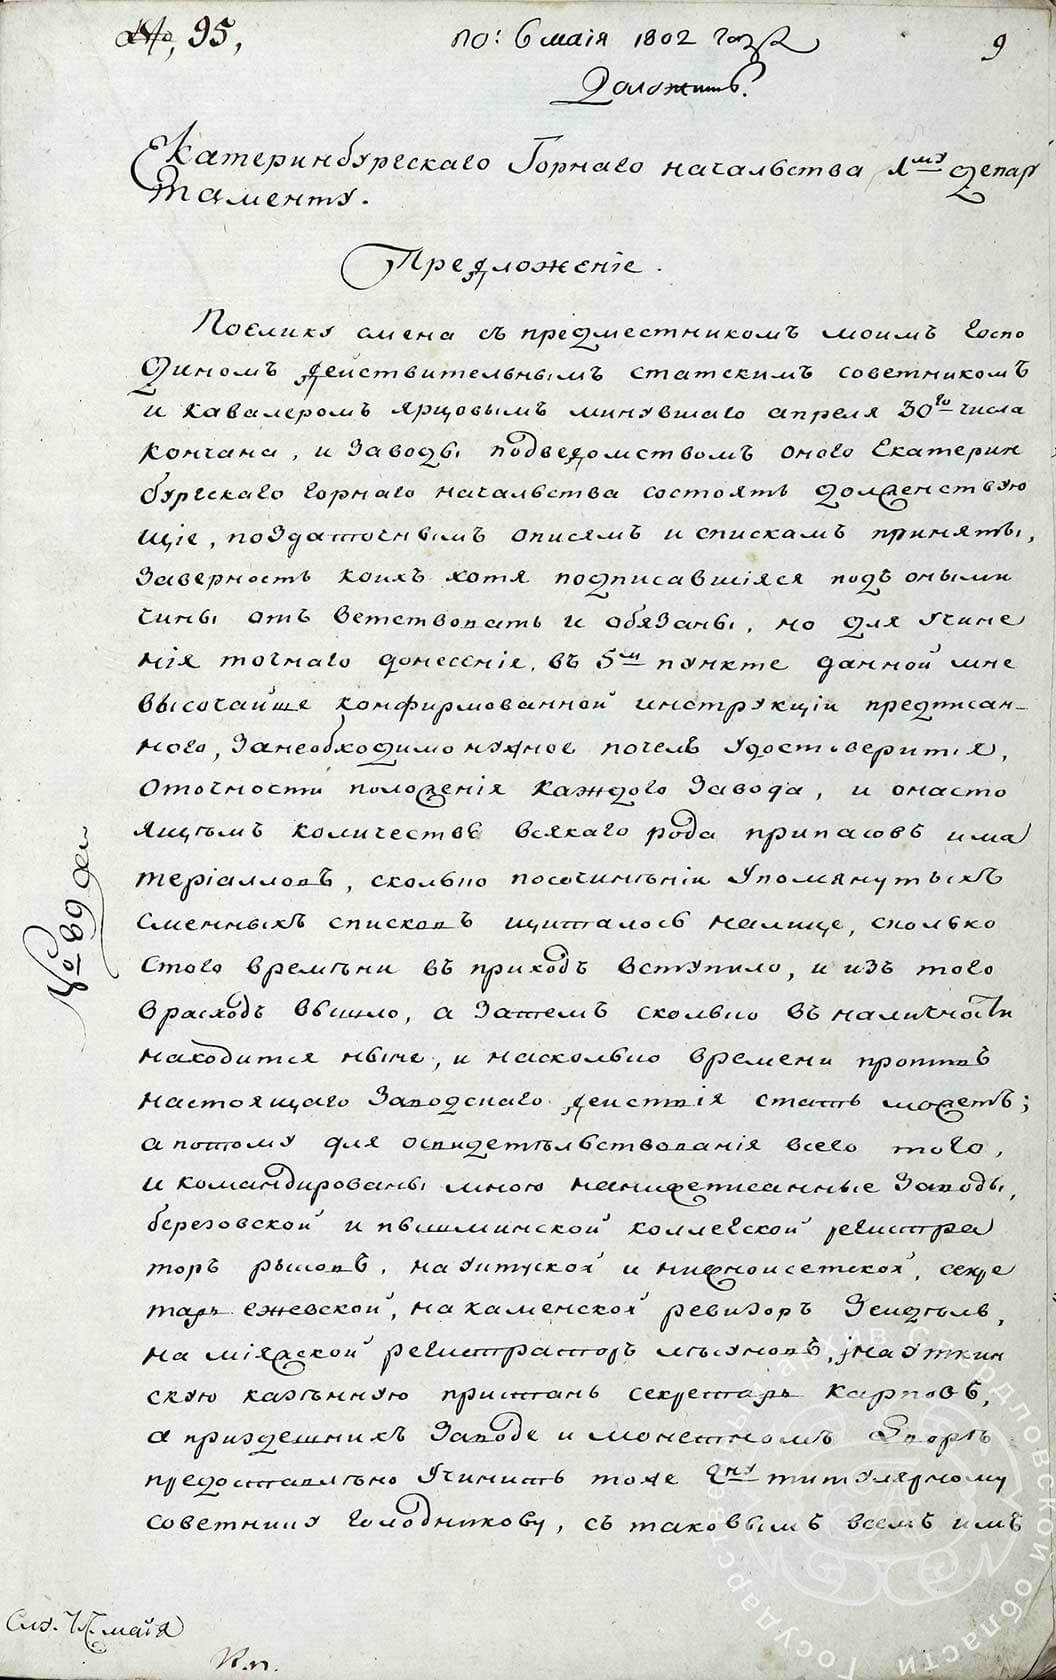 №, 95,
по: 6 маія 1802 года
9
Доложить.
Екатеринбургскаго Горнаго начальства 1му департаменту.
таменту.
Предложеніе.
Поелику смена съ предместникомъ моимъ Госпо
диномъ действительнымъ статскимъ советникомъ
и кавалеромъ Ярцовымъ минувшаго апреля 30го числа
кончана, и заводы подведомствомъ оного Екатерин
бургскаго горнаго начальства состоятъ долженствую
щіе, поздаточнымъ описямъ и спискамъ приняты,
заверность коихъ хотя подписавшіяся подъ оными
чины отъ ветствовать и обязаны, но для учине
нія точнаго донесеніе, въ 5м пункте данной мне
высочайше конфирмованной инструкціи предписан-
ного, занеобходимо нужное почелъ удостоверится,
оточности положенія каждого завода, и онасто
ящемъ количестве всякаго рода припасовъ има
теріалловъ, сколько посочиненіи упомянутыхъ
сменныхъ списковъ щиталось налице, сколько
стого времени въ приходъ вступило, и изъ того
врасходъ вышло, а затемъ сколько въ наличности
находится ныне, и насколько времени противъ
настоящаго заводскаго действія стать можетъ;
а потому для освидетельствованія всего того,
и командированы мною нанижеписанные заводы,
березовской и пышминской коллежской регистра
торъ рысовъ, на уктуской и нижноисетской, секре
тарь ежевской, на каменской ревизоръ Зейдель,
на міяской регистраторъ мысуновъ, і на уткин
скую казенную пристань секретарь Карповъ,
а приздешнихъ заводе и монетномъ дворе
предоставлено учинить тоже гну титулярному
советнику голодникову, съ таковымъ всемъ имъ
по 89 дел
Слу. 17. маія